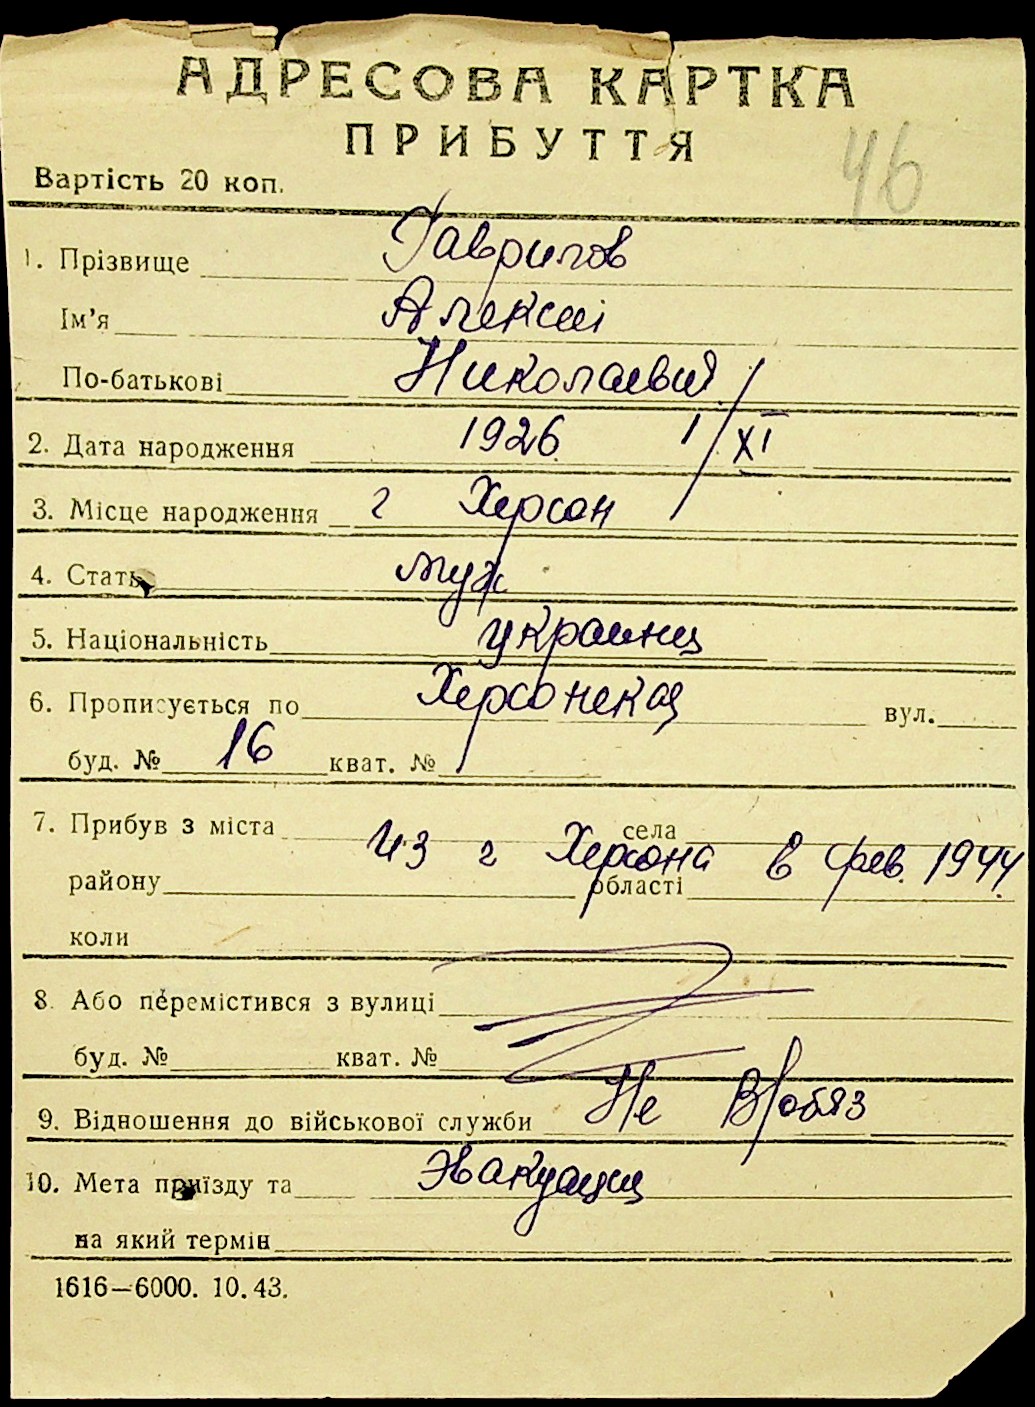 АДРЕСОВА КАРТКА
ПРИБУТТЯ
46
Вартість 20 коп.
1. Прізвище Гаврилов
Ім'я Алексей
По-батькові Николаевич
2. Дата народження 1926 1/XI
3. Місце народження г Херсон
4. Стать муж
5. Національність украинец
6. Прописується по Херсонская вул.
буд. № 16 кват. №
7. Прибув з міста села
из г Херсона в фев. 1944
району області
коли
8. Або перемістився з вулиці
буд. № кват. №
9. Відношення до військової служби Не В/обяз
10. Мета приїзду та Эвакуации
на який термін
1616—6000. 10.43.